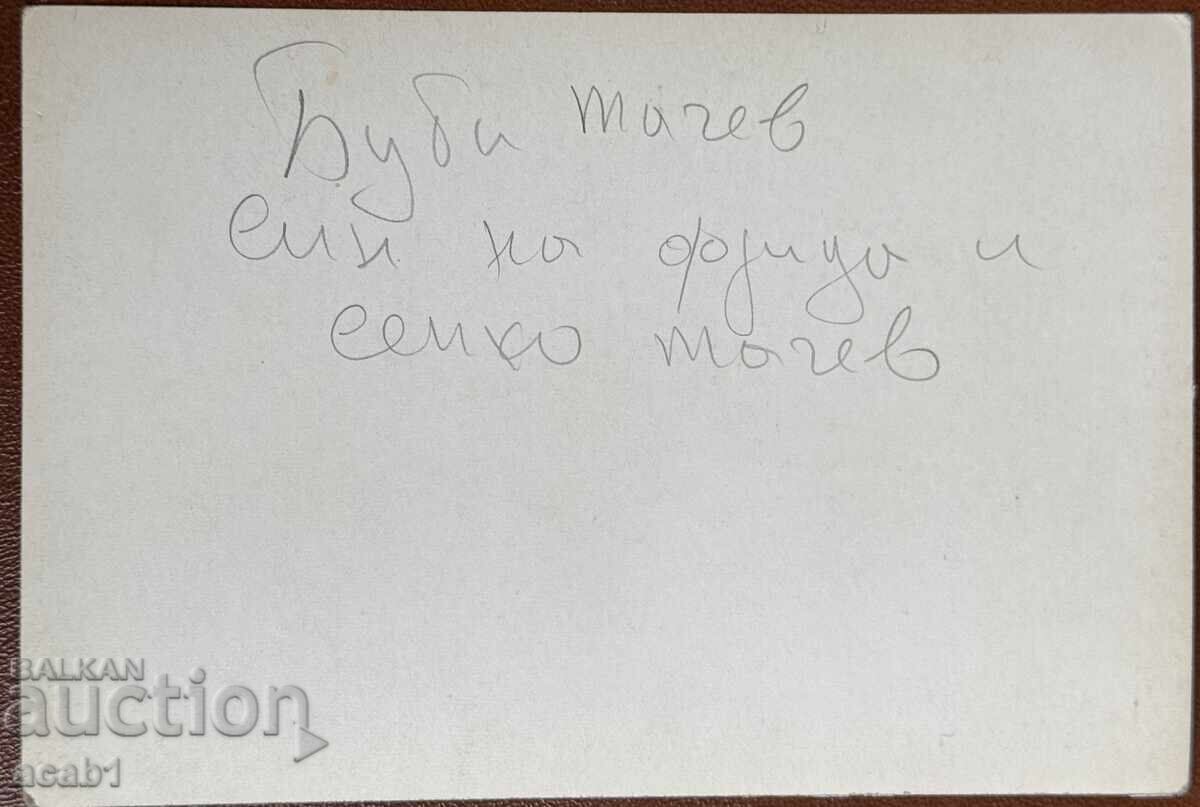 Буби Тачев
син на Фрида и
Сенко Тачев
BALKAN
auction
acab1